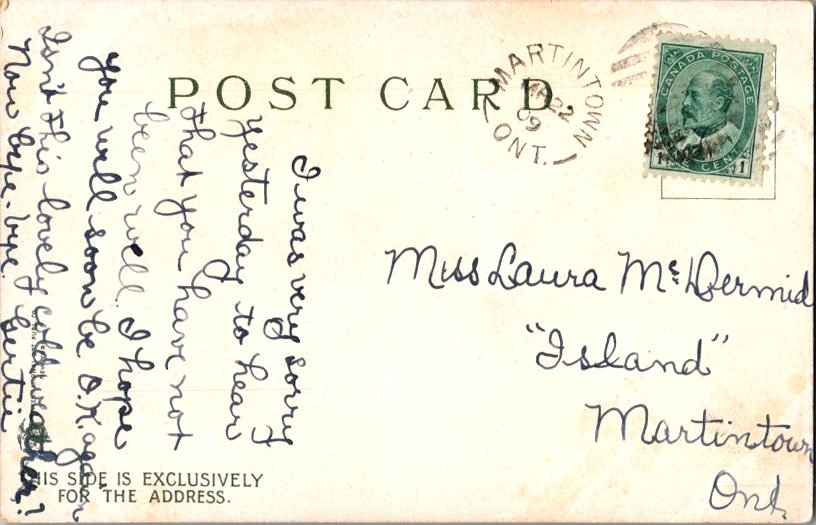 POST CARD
MARTINTOWN
22
09
ONT.
CANADA POSTAGE
1 1
Miss Laura McDermid
"Island"
Martintown
Ont.
I was very sorry
yesterday to hear
that you have not
been well. I hope
you will soon be O.K. again
Isn't this lovely cold weather?
Now bye-bye. Gertie
THIS SIDE IS EXCLUSIVELY
FOR THE ADDRESS.